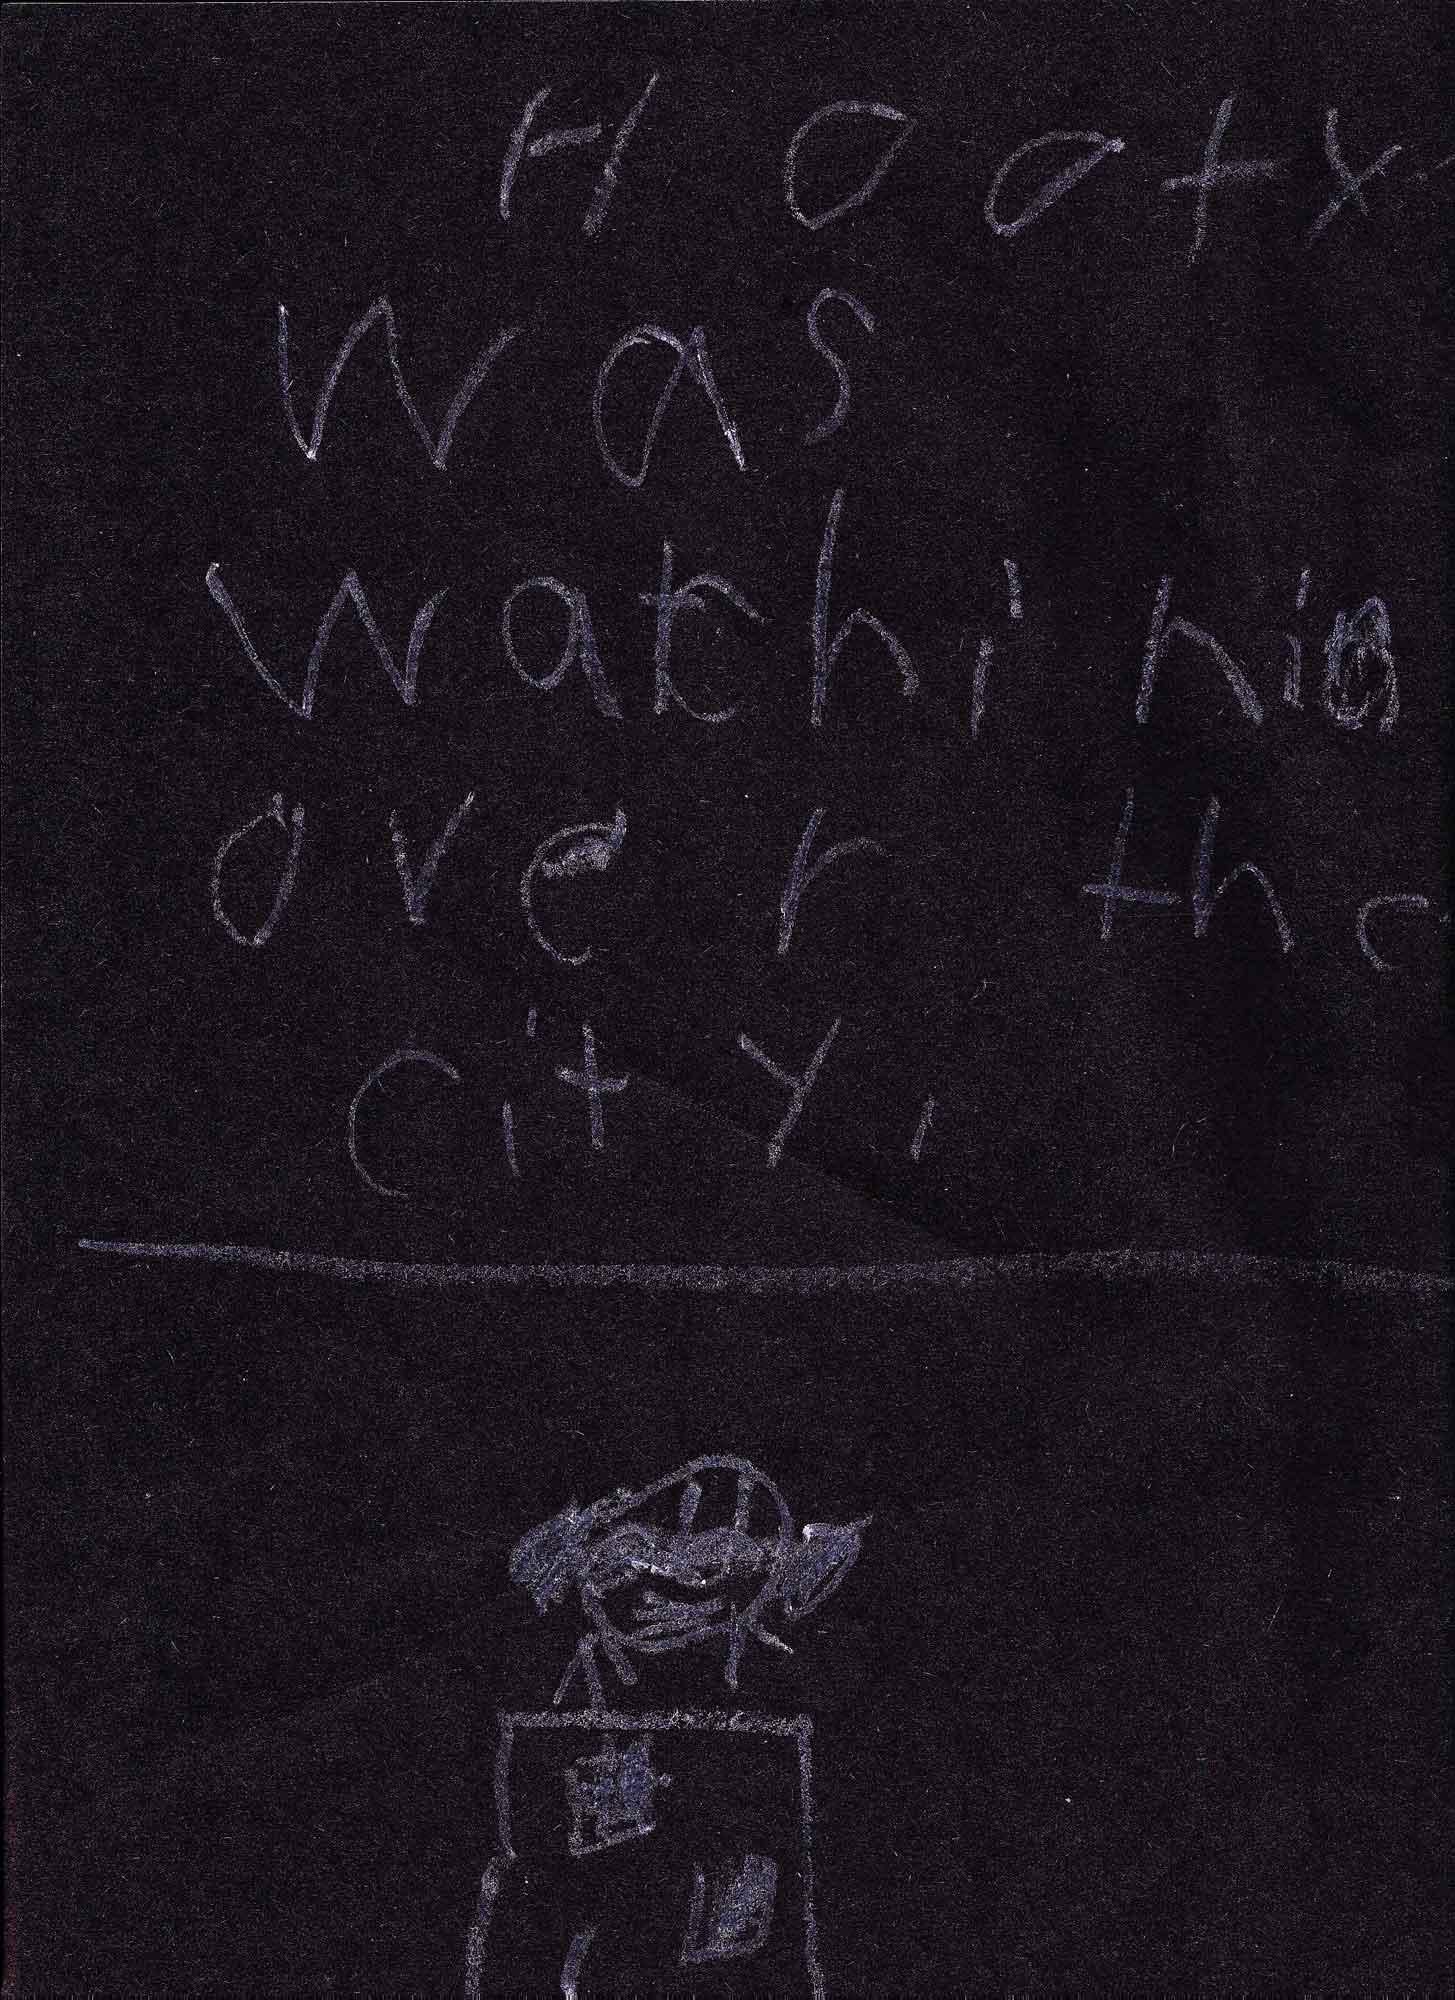 Hooty
was
watchinig
over the
city.